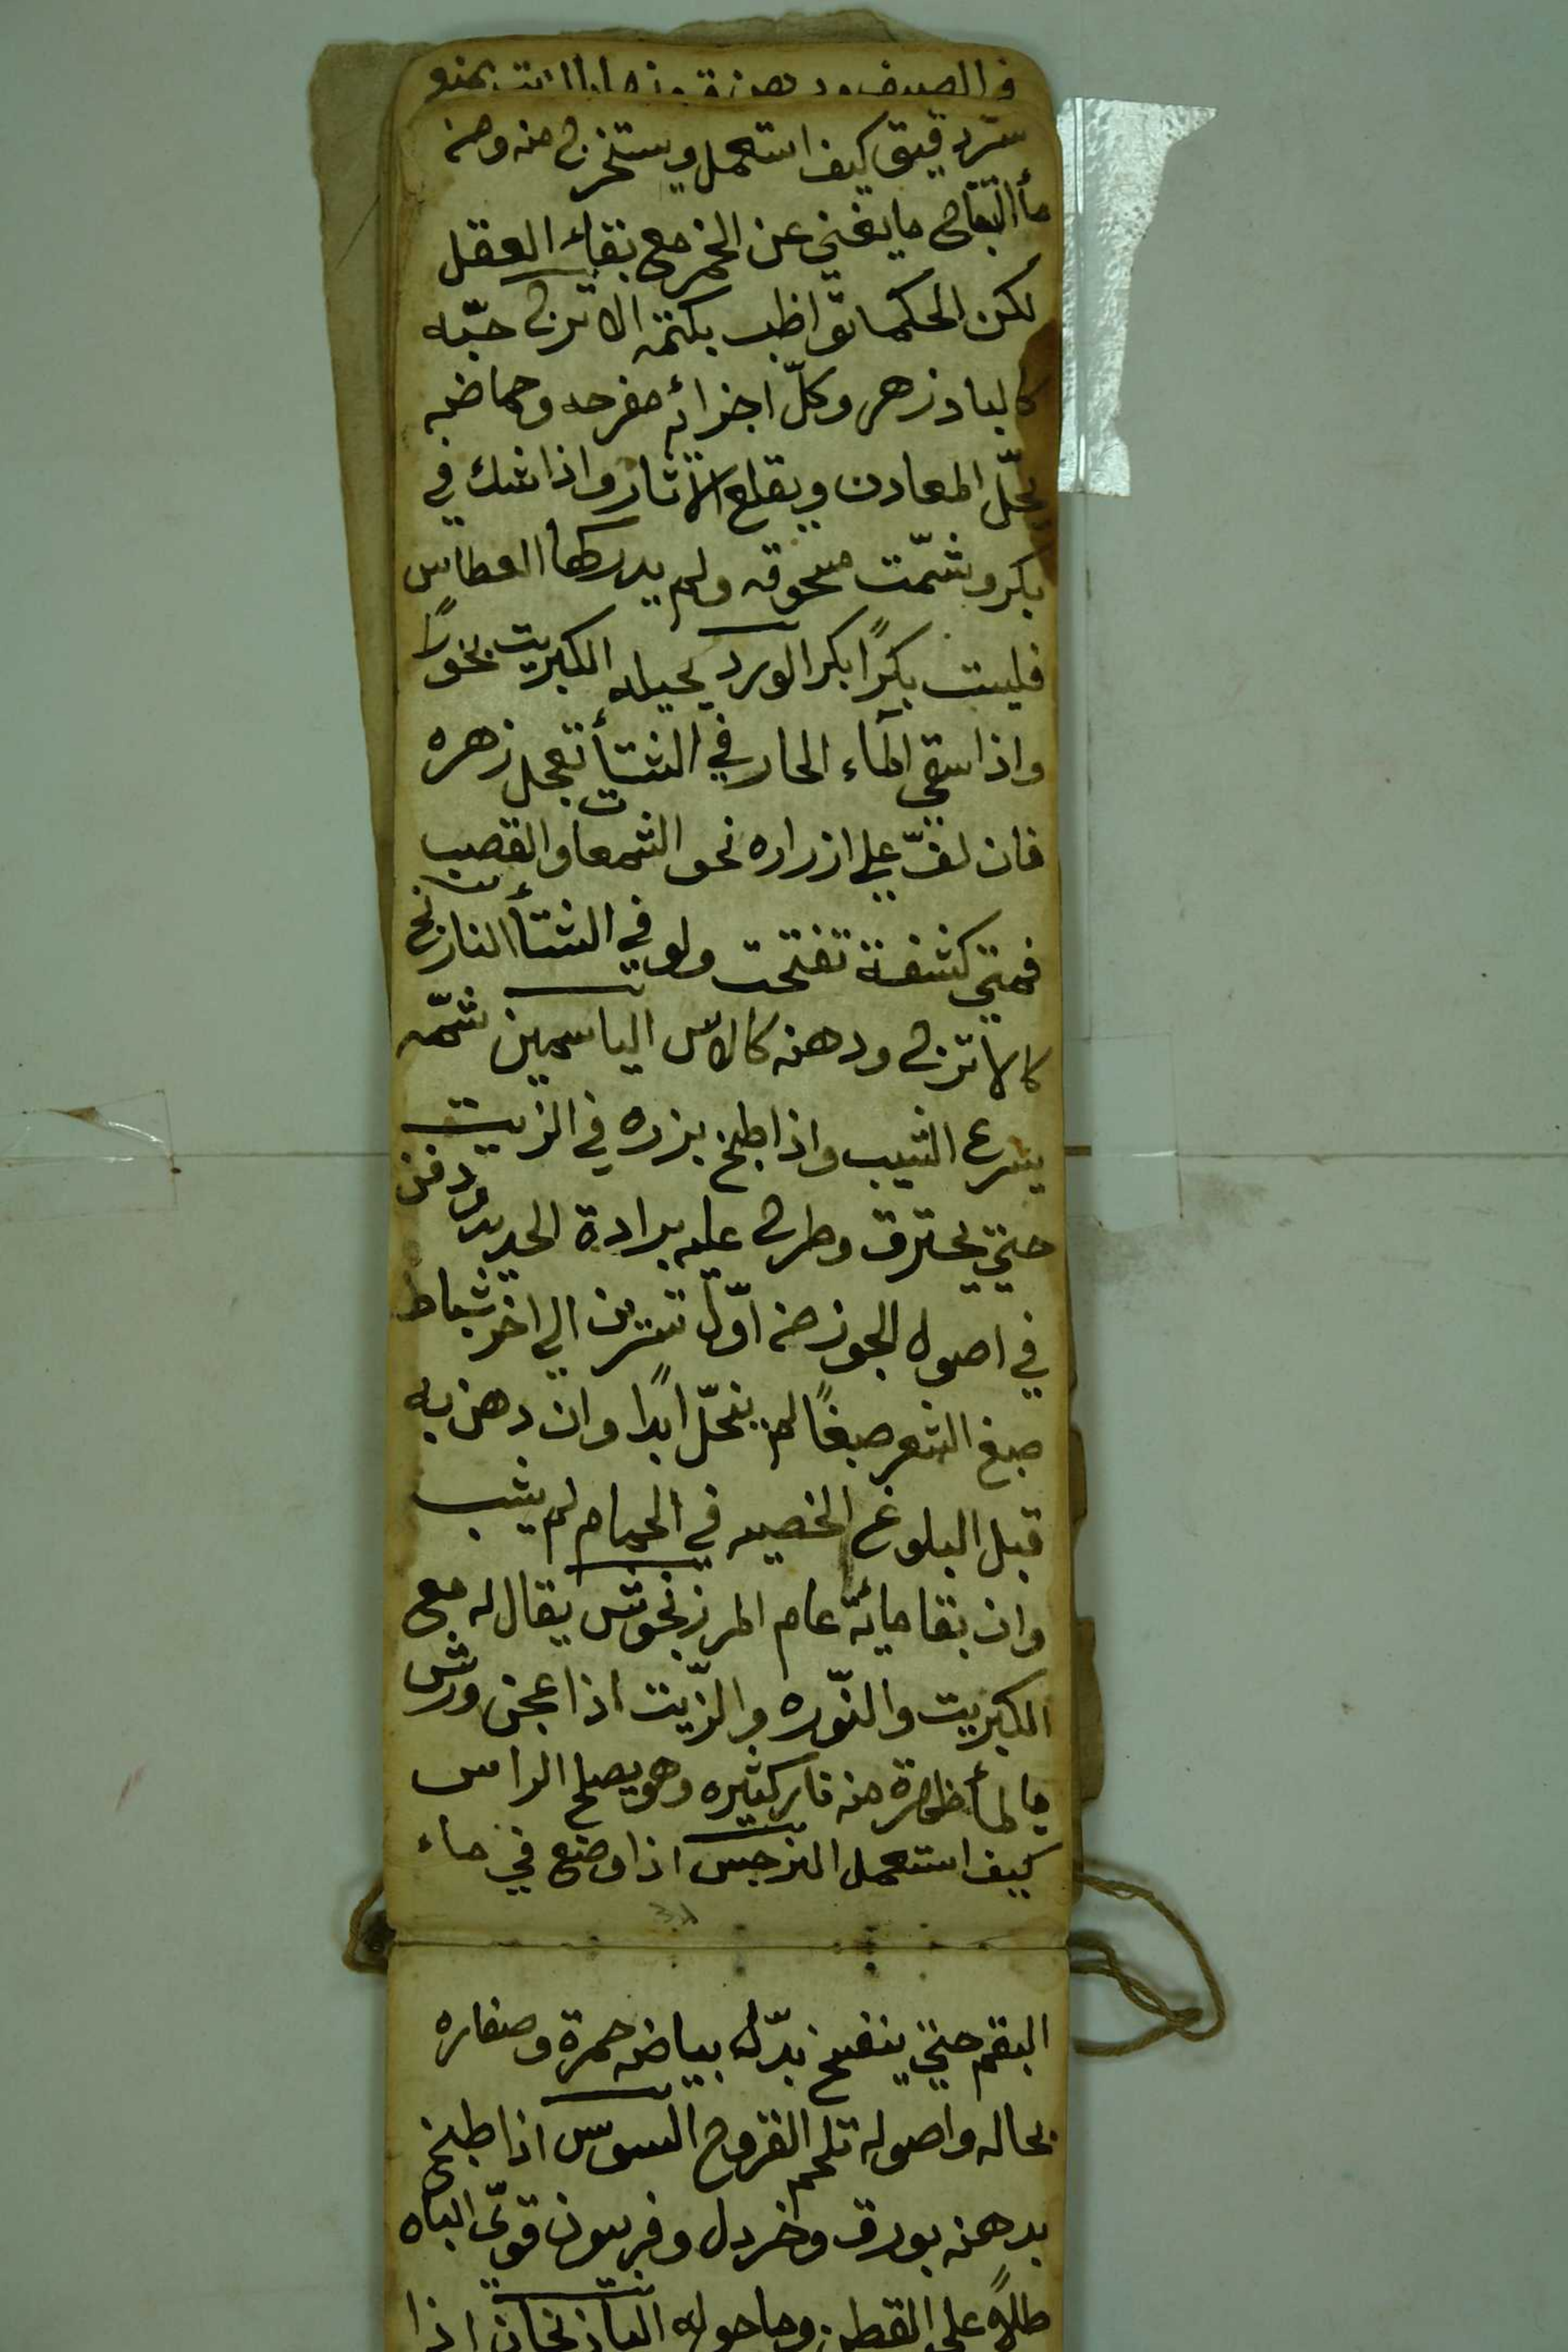 في الصيف ودهن
سرّ دقيق كيف استعمل ويستخرج منه ومن
مأ التفاح ما يغني عن الخمر مع بقاء العقل
لكن الحكما تواظب بكتمه الاترج حبّه
كالبادزهر وكلّ اجزائه مفرحه وحماضه
يحلّ المعادن ويقلع الآثار واذا شك في
بكر وشمّت محوقه ولم يدركها العطاس
فليست بكرًا بكر الورد يحيله الكبريت بخورًا
واذا سقي الماء الحار في الشتأ تعجل زهره
فان لفّ علي ازراره نحو الشمعا والقصب
فمتي كشفة تفتحت ولو في الشتأ النارنج
كالاترج ودهنه كالاس الياسمين شمّه
يسرع الشيب واذا طبخ بزره في الزيت
حتي يحترق وطرح عليه برادة الحديد ودفن
في اصول الجوز من اوّل تشرين الي اخر شباط
صبغ الشعر صبغًا لم ينحلّ ابدًا وان دهن به
قبل البلوغ الخصيه في الحمام لم يشب
وان بقا مائة عام المرزنجوش يقال له مع
الكبريت والنّوره والزّيت اذا عجن ورش
بالمأ ظهرة منه نار كثيره وهو يصلح الراس
كيف استعمل النرجس اذا وضع في ماء
البقم حتي ينفتح بدّل بياضه حمرة وصفاره
بحاله واصوله تلحم القروح السوس اذا طبخ
بدهنه بورق وخردل وفربيون قوّي الباه
طلاً علي القطن وما حوله الباذنجان اذا